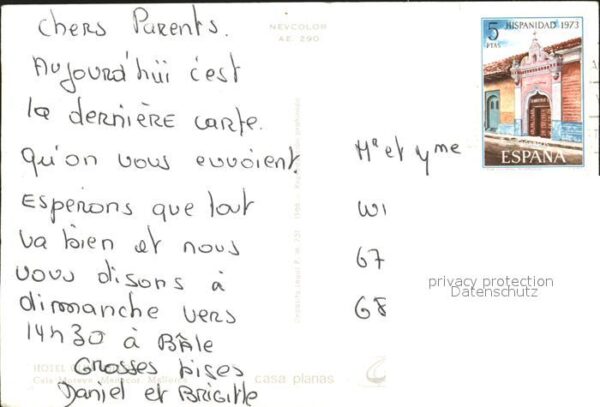 Chers Parents.
Aujourd'hui c'est
la dernière carte.
qu'on vous envoient.
Esperons que tout
va bien et nous
vous disons à
dimanche vers
14h30 à Bâle
Grosses bises
Daniel et Brigitte
NEVCOLOR
AE. 290
HOTEL
Cala Moreya, Manacor, Mallorca
casa planas
5
PTAS
HISPANIDAD 1973
CORREOS
ESPAÑA
Mr et Mme
Wi
67
68
privacy protection
Datenschutz